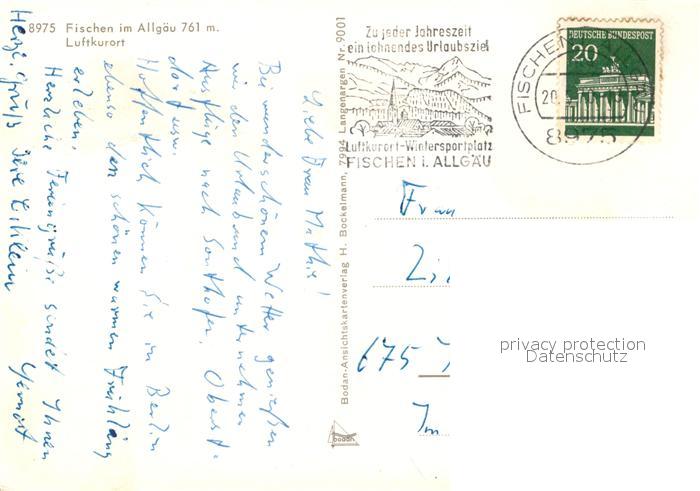 8975 Fischen im Allgäu 761 m.
Luftkurort
Liebe Frau Mathis!
Bei wunderschönem Wetter genießen
wir den Urlaub und unternehmen
Ausflüge nach Sonthofen, Oberst-
dorf usw.
Hoffentlich können Sie in Berlin
ebenso den schönen warmen Frühling
erleben.
Herzliche Feriengrüße sendet Ihnen
Herzl. Gruß Ihre
Bodan-Ansichtskartenverlag H. Bockelmann, 7994 Langenargen Nr. 9001
bodan
Zu jeder Jahreszeit
ein lohnendes Urlaubsziel
Luftkurort-Wintersportplatz
FISCHEN i. ALLGÄU
FISCHEN
20.
8975
DEUTSCHE BUNDESPOST
20
Frau
675
privacy protection
Datenschutz